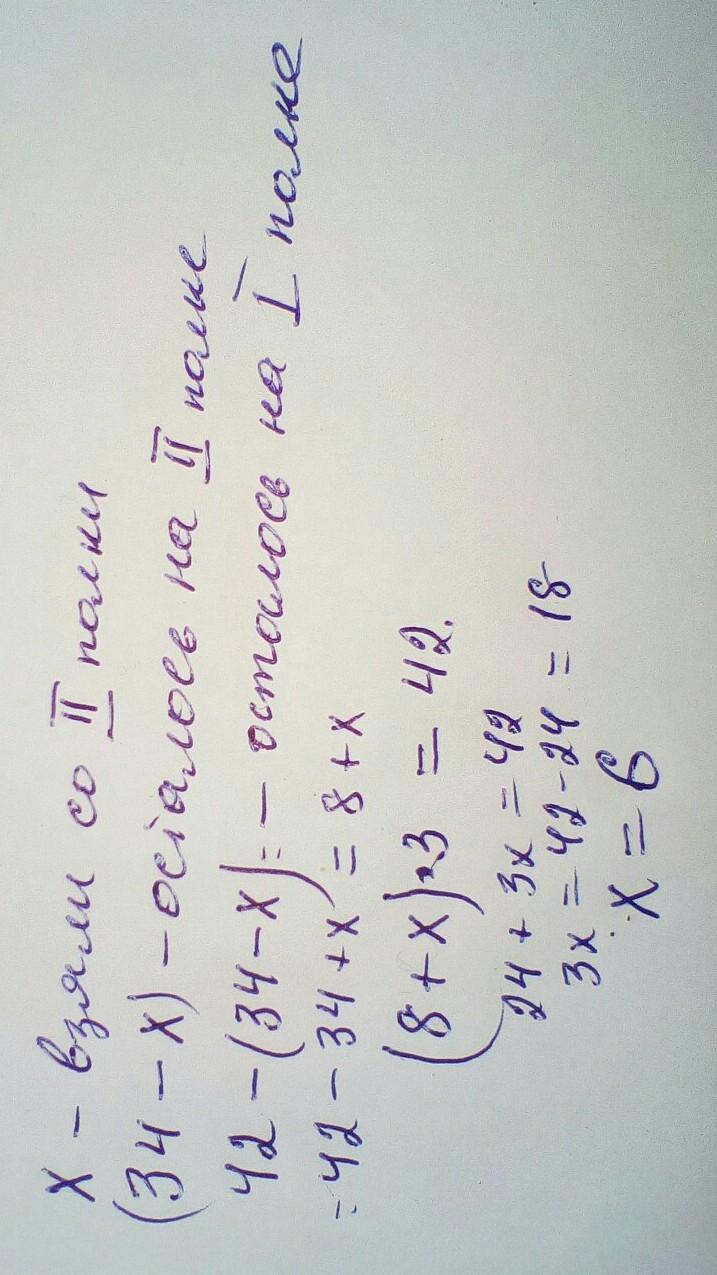 x – взяли со II полки
(34 – x) – осталось на II полке
42 – (34 – x) = – осталось на I полке
= 42 – 34 + x = 8 + x
(8 + x) · 3 = 42.
24 + 3x = 42
3x = 42 - 24 = 18
x = 6